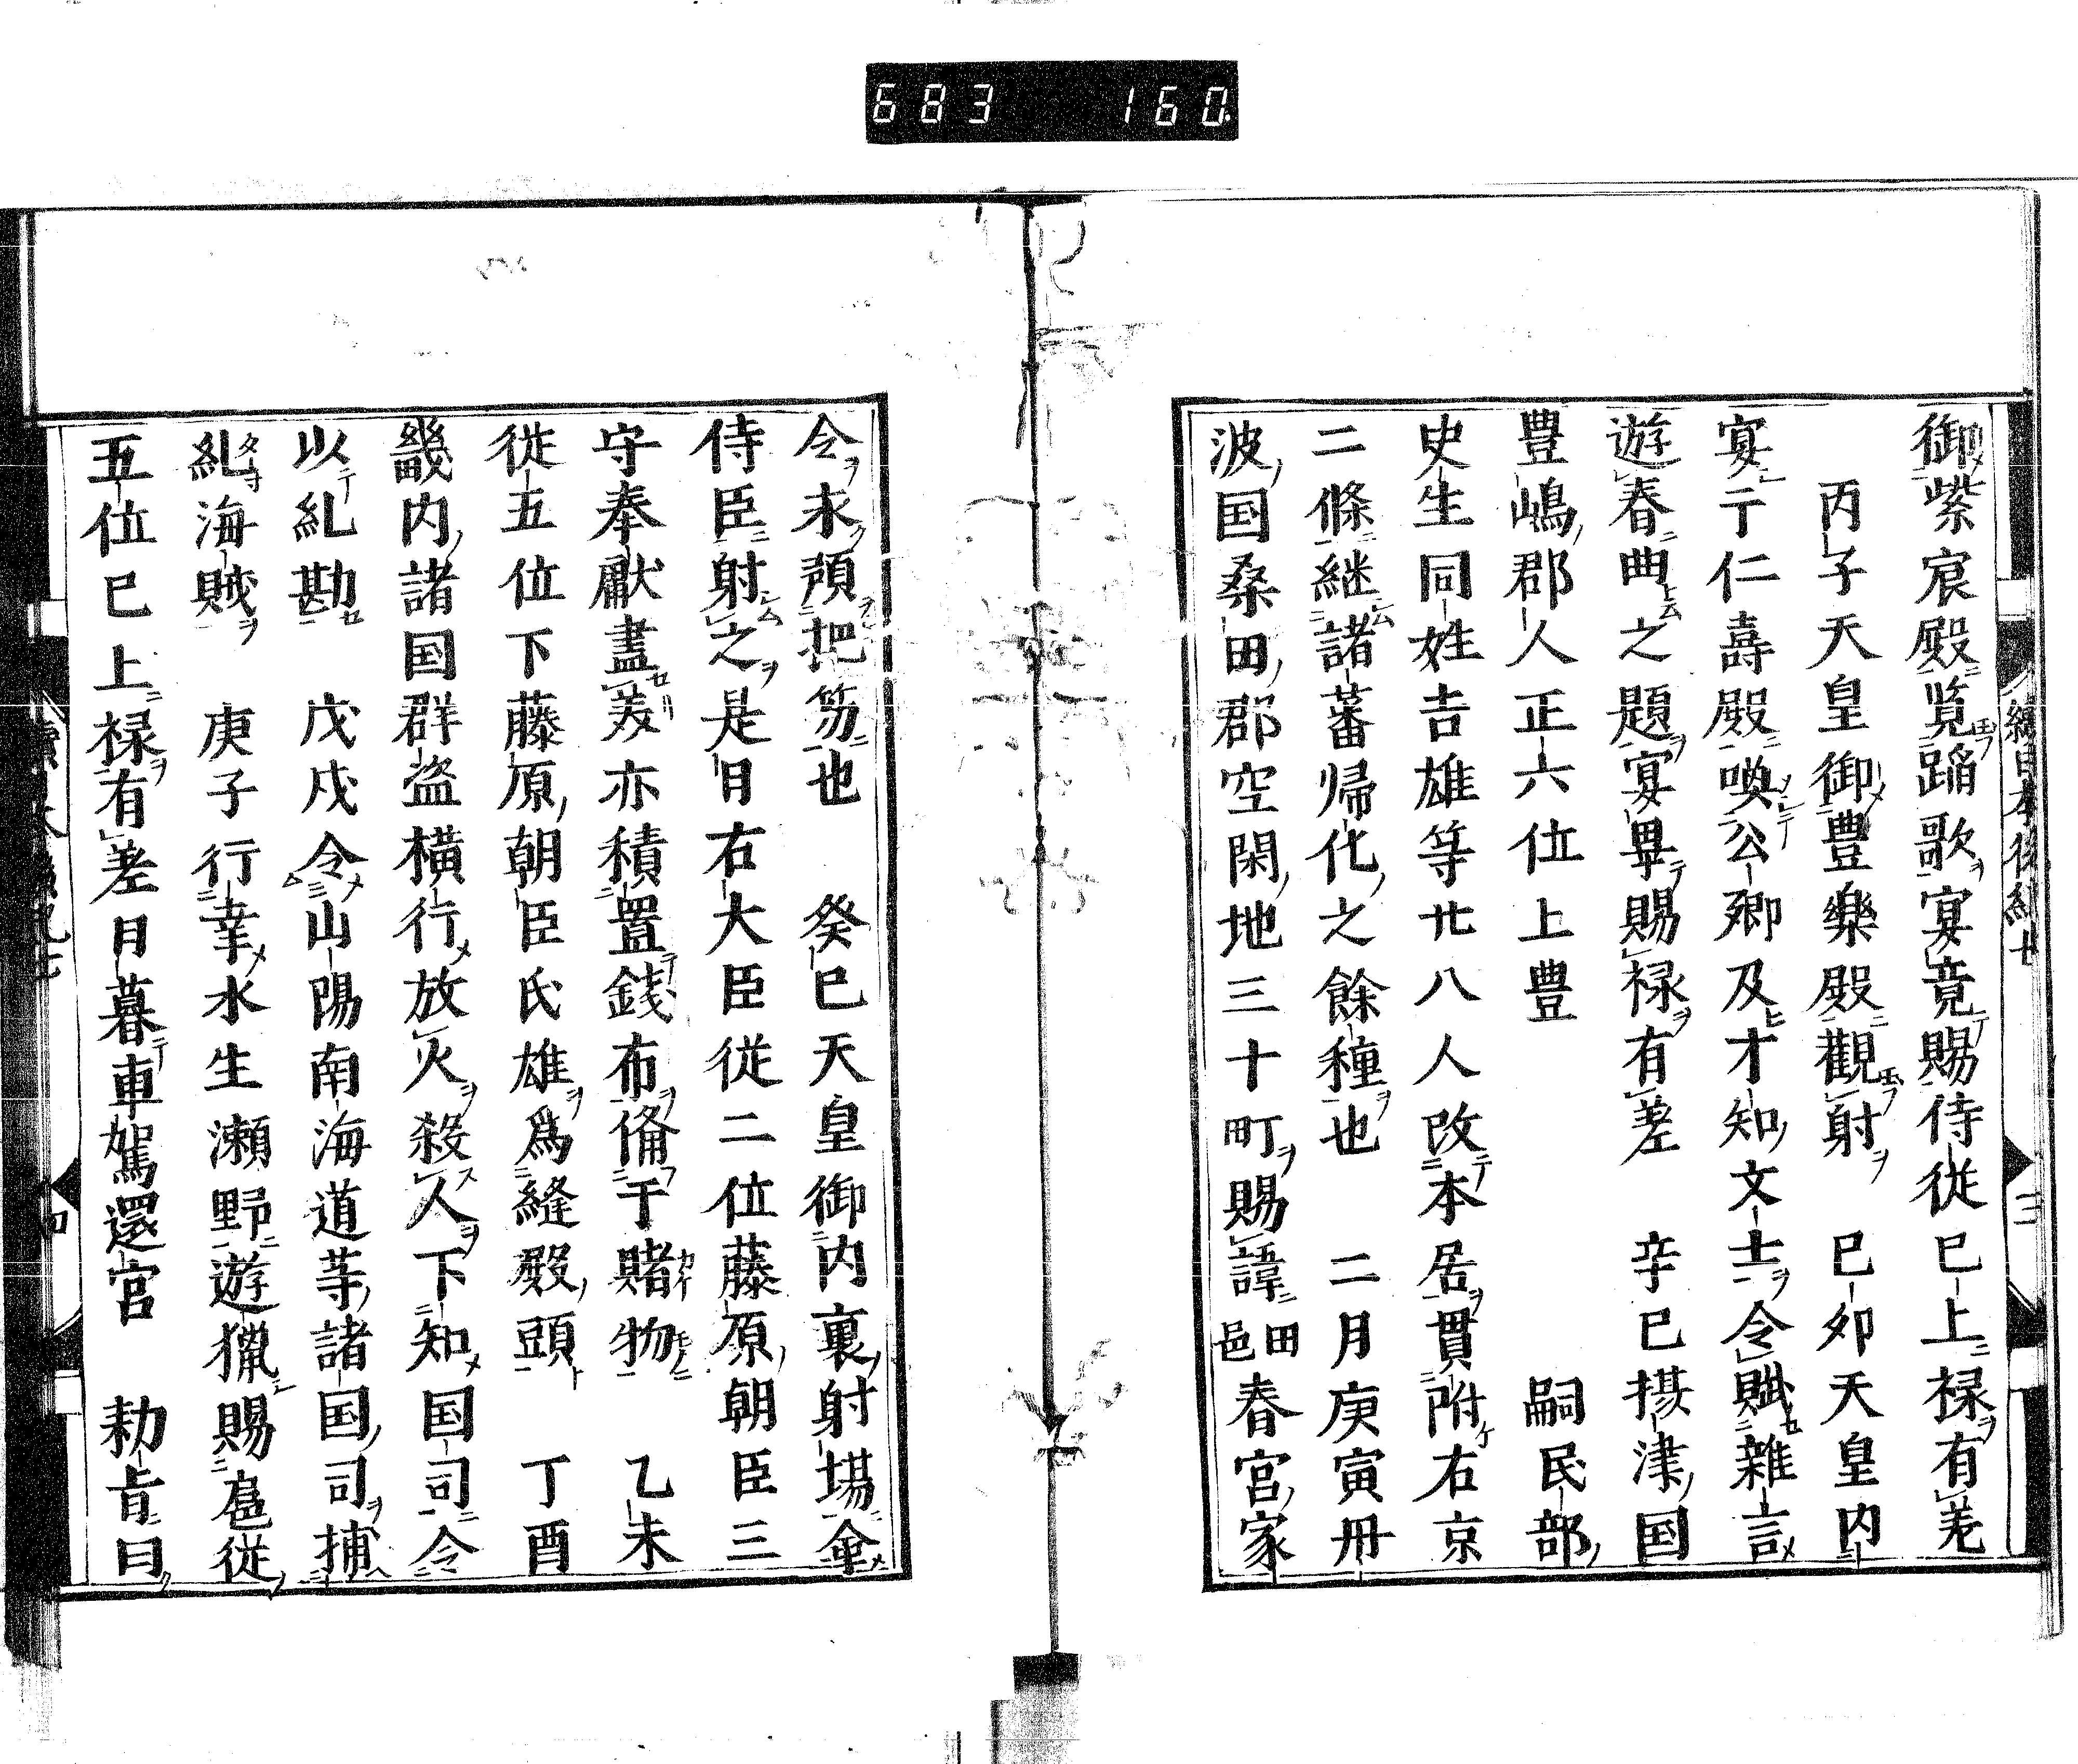 683 160
續日本後紀七
三
御紫宸殿覧蹋歌宴竟賜侍従已上禄有差
丙子天皇御豊樂殿觀射　已卯天皇内
宴于仁壽殿喚公卿及才知文士令賦雜言
遊春曲之題宴畢賜禄有差　辛巳摂津国
豊嶋郡人正六位上豊　嗣民部
史生同姓吉雄等廿八人改本居貫附右京
二條継諸蕃帰化之餘種也　二月庚寅丹
波国桑田郡空閑地三十町賜諱田邑春宫家
令未預把笏也　癸巳天皇御内裏射場令
侍臣射之是日右大臣従二位藤原朝臣三
守奉獻盡美亦積置銭布俻于賭物　乙未
従五位下藤原朝臣氏雄爲縫殿頭　丁酉
畿内諸国群盗横行放火殺人下知国司令
以糺勘　戊戌令山陽南海道等諸国司捕
糺海賊　庚子行幸水生瀬野遊猟賜扈従
五位已上禄有差日暮車駕還宫　勅旨曰
四